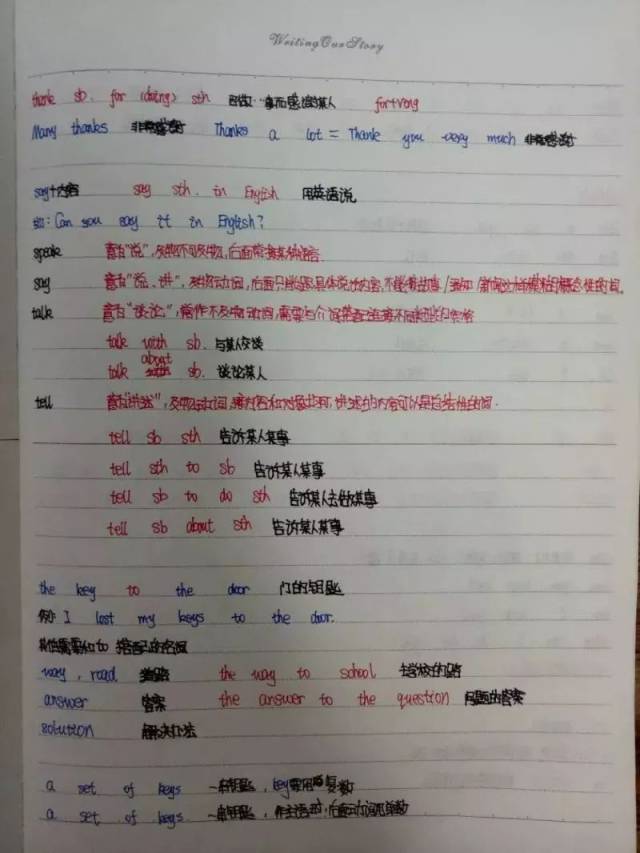 Writing Our Story
thank sb. for (doing) sth 因做…事而感谢某人 for+ving
Many thanks 非常感谢 Thanks a lot = Thank you very much 非常感谢
say+内容 say sth. in English 用英语说
如: Can you say it in English?
speak 意为"说",
say 意为"说、讲", 及物动词, 后面只能跟具体说的内容, 不能
talk 意为"谈论", 常作不及物动词, 需要与介词搭配连接不同
talk with sb. 与某人交谈
talk about sb. 谈论某人
tell 意为"讲述", 及物动词, 讲述的内容可以是总结性的词.
tell sb sth 告诉某人某事
tell sth to sb 告诉某人某事
tell sb to do sth 告诉某人去做某事
tell sb about sth 告诉某人某事
the key to the door 门的钥匙
例: I lost my keys to the door.
其他需要和to 搭配的名词
way, road 道路 the way to school 去学校的路
answer 答案 the answer to the question 问题的答案
solution 解决办法
a set of keys 一串钥匙, key要用复数
a set of keys 一串钥匙, 作主语时, 后面动词用单数